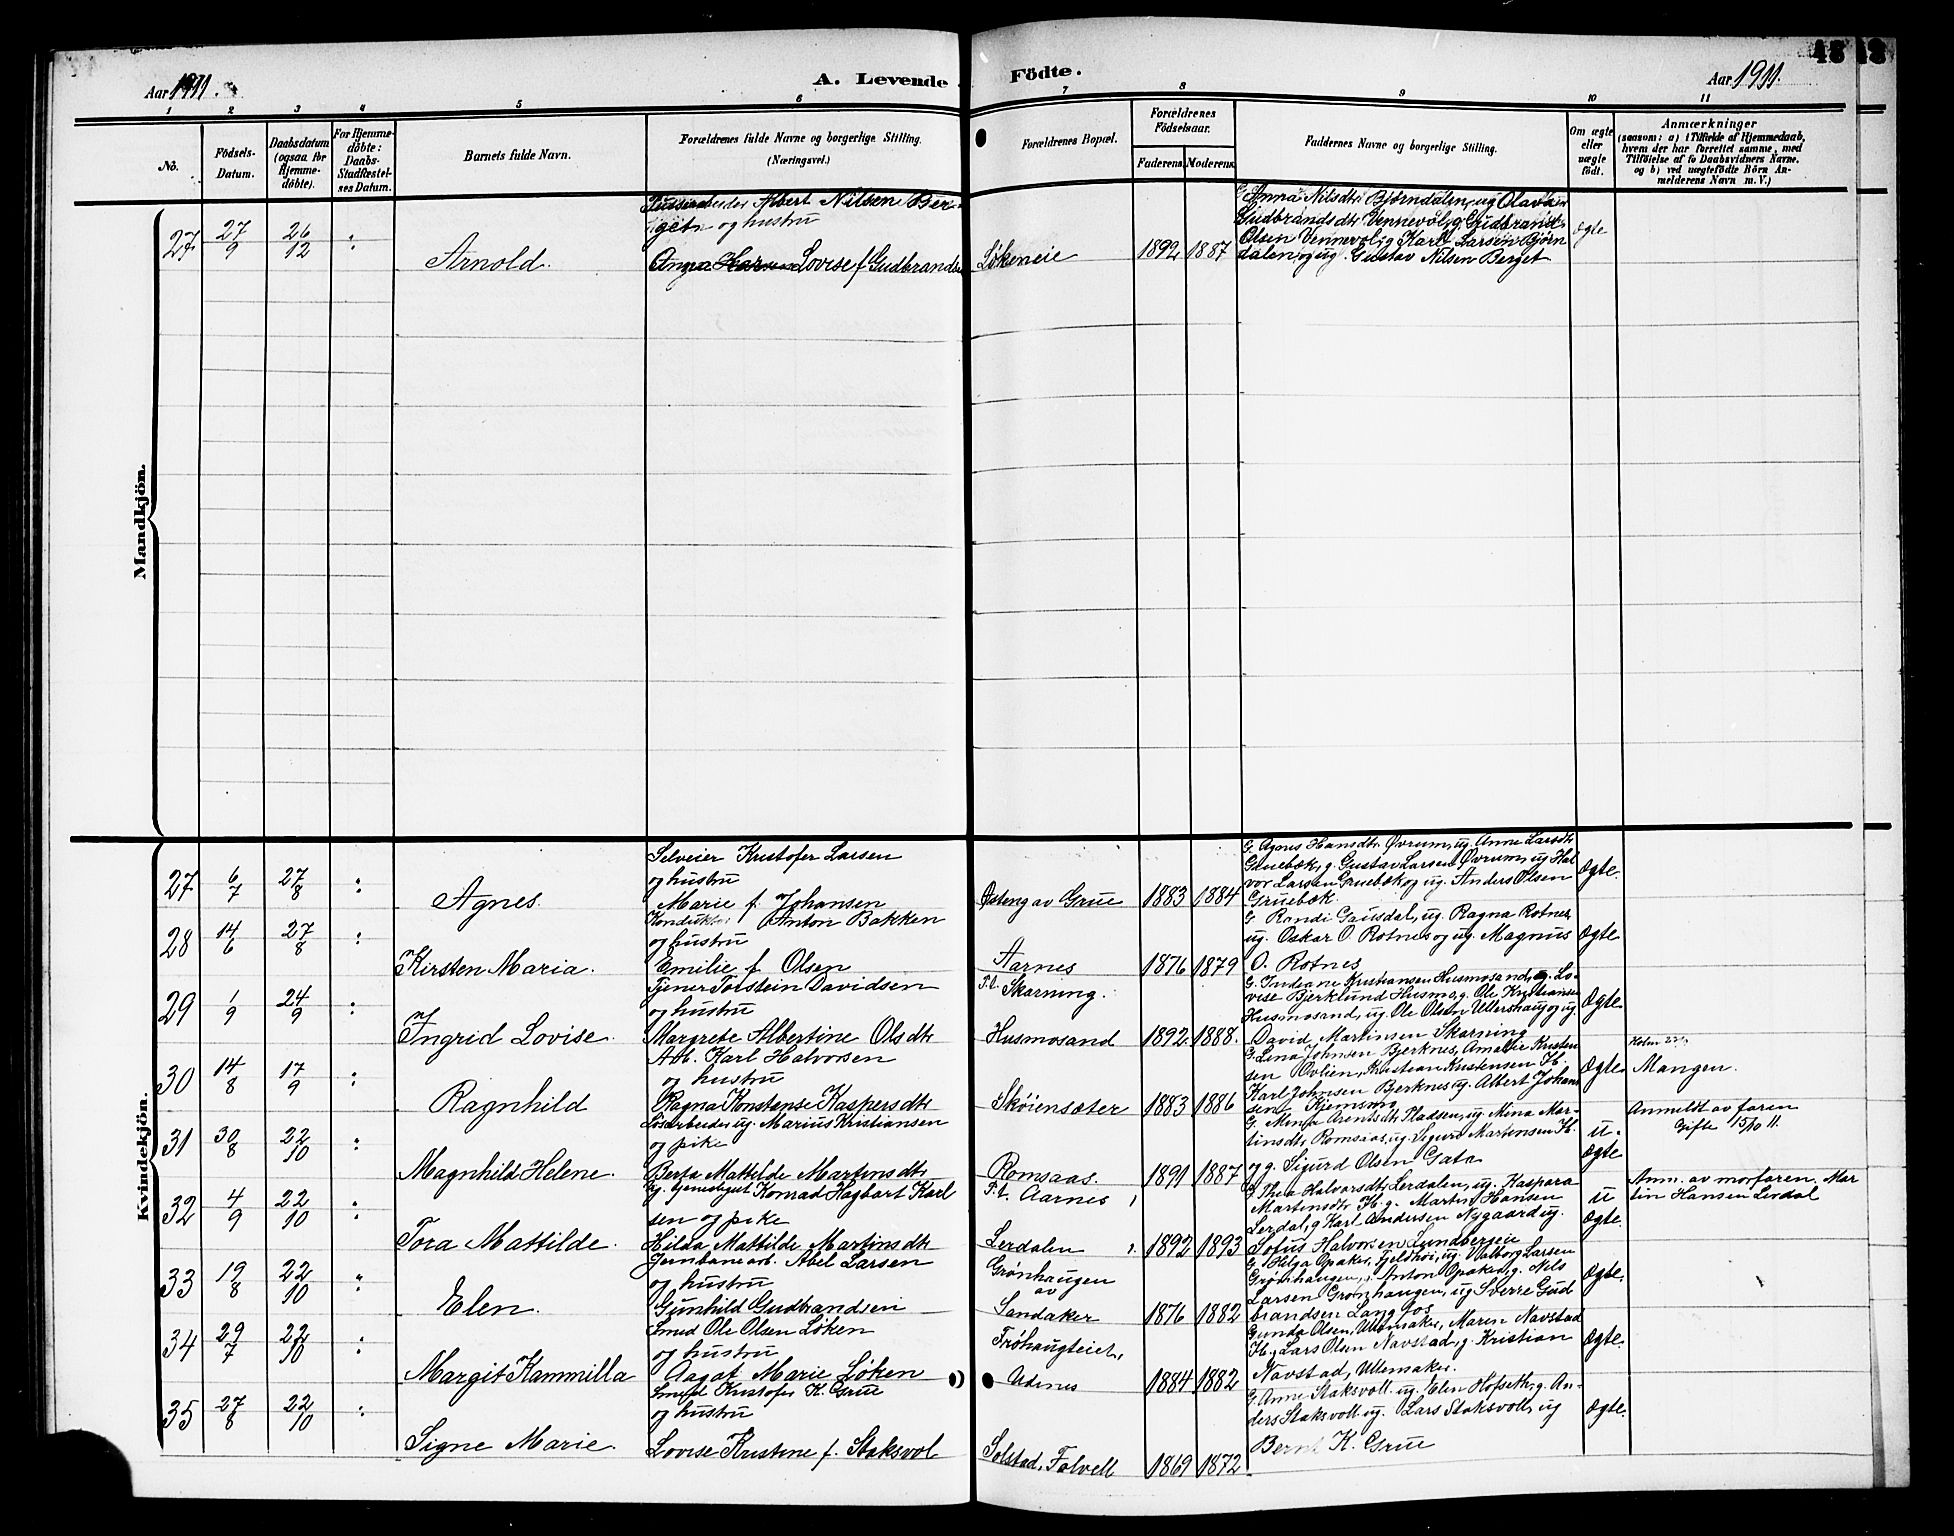 Aar 1911.
A. Levende
Födte.
Aar 1911.
48
1 2 3 4 5 6 7 8 9 10 11
No.
Födsels-Datum.
Daabsdatum (ogsaa for Hjemme-döbte).
For Hjemme-döbte: Daabs-Stadfæstel-ses Datum.
Barnets fulde Navn.
Forældrenes fulde Navne og borgerlige Stilling. (Næringsvei.)
Forældrenes Bopæl.
Forældrenes Födselsaar.
Faderens. Moderens.
Faddernes Navne og borgerlige Stilling.
Om ægte eller uægte födt.
Anmærkninger
(saasom: a) i Tilfælde af Hjemmedaab, hvem der har forrettet samme, med Tilföielse af to Daabsvidners Navne. og b) ved uægtefödte Börn An-melderens Navn m. V.)
Mandkjön.
27 27/9 26/12 Arnold.
Albert Nilsen Ber-
get og hustru
Lovise f. Gudbrands
Løkeneie 1892 1887
G. Anna Nilsdtr. Bjørndalen, ug Olava
Gudbrandsdtr. Vennevol, g. Gudbrand
Olsen Vennevol, g Karl Larsen Bjørn
dalen og ug. Gustav Nilsen Berget
ægte
Kvindekjön.
27 6/7 27/8 Agnes.
Selveier Kristofer Larsen
og hustru
Marie f. Johansen
Østeng av Grue 1883 1884
G. Agnes Hansdtr. Øvrum, ug. Anne Larsdtr
Gruebæk, g. Gustav Larsen Øvrum, ug Hal
vor Larsen Gruebæk og ug. Anders Olsen
Gruebæk.
Ægte.
28 14/6 27/8 Kirsten Maria.
Konduktør Anton Bakken
og hustru
Emilie f. Olsen
Aarnes 1876 1879
G. Randi Gausdal, ug. Ragna Rotnes
ug. Oskar O. Rotnes og ug. Magnus
O. Rotnes
Ægte
29 1/9 24/9 Ingrid Lovise.
Tjener Torstein Davidsen
og hustru
Margrete Albertine Olsdtr
P.t. Skarning.
Husmosand 1892 1888.
G. Indiane Kristiansen Husmosand, ug. Lo-
vise Bjerklund Husmo, g. Ole Kristiansen
Husmosand, ug. Ole Olsen Ullershaug og ug
David Martinsen Skarning
Ægte.
30 14/8 17/9 Ragnhild
Arb. Karl Halvorsen
og hustru
Ragna Konstanse Kaspersdtr
Skøiensæter 1883 1886
G. Lina Johnsen Bjerknes, Amalie Kristen
sen Øvlien, Kristian Kristensen Ib.
Karl Johnsen Bjerknes ug. Albert Johan
sen Kjemsmo
Ægte. Mangen.
31 30/8 22/10 Magnhild Helene.
Løsarbeider ug. Marius Kristiansen
og pike
Berta Mattilde Martinsdtr
Romsaas. 1891 1887
G. Mina Arentsdtr Pladsen, ug. Mina Mar-
tinsdtr. Romsaas, ug. Sigurd Martinsen Ib.
og g. Sigurd Olsen Gata
u-
ægte
Anmeldt av faren
Gifte 15/10 11.
32 4/9 22/10 Tora Mattilde.
Konrad Hagbart Karl
sen og pike
Hilda Mattilde Martinsdtr
P.t. Aarnes,
Lerdalen 1892 1893
G Thea Halvorsdtr. Lerdalen, ug. Kaspara
Martinsdtr Ib. g. Martin Hansen
Lerdal, g Karl Andersen Nygaard ug.
Sofus Halvorsen Lundbergeie
u
ægte.
Anm. av morfaren Mar
tin Hansen Lerdal
33 19/8 22/10 Elen.
Jernbanearb. Abel Larsen
og hustru
Gunhild Gudbrandsen
Grønhaugen
av
Sandaker 1876 1882
G Helga Opaker, Fjeldhøi, ug. Valborg Larsen
Grønhaugen, g. Anton Opaker, g. Nils
Larsen Grønhaugen, ug Sverre Gud
brandsen Langfos
Ægte.
34 29/7 22/10 Margit Kammilla
Smed Ole Olsen Løken
og hustru
Aagot Marie Løken
Frøhaugteiet,
Udenes 1884 1882
Gunda Olsen, Ullemaker, Maren Navstad
Ib., Lars Olsen Navstad, g. Kristian
Navstad, Ullemaker.
Ægte.
35 27/8 22/10 Signe Marie.
Smed Kristofer K. Grue
og hustru
Lovise Kristine f. Staksvol
Solstad, Folvell 1869 1872
G. Anne Staksvoll. ug. Elen Hofseth, g. An-
ders Staksvoll. ug. Lars Staksvoll, ug
Bernt K. Grue
Ægte.